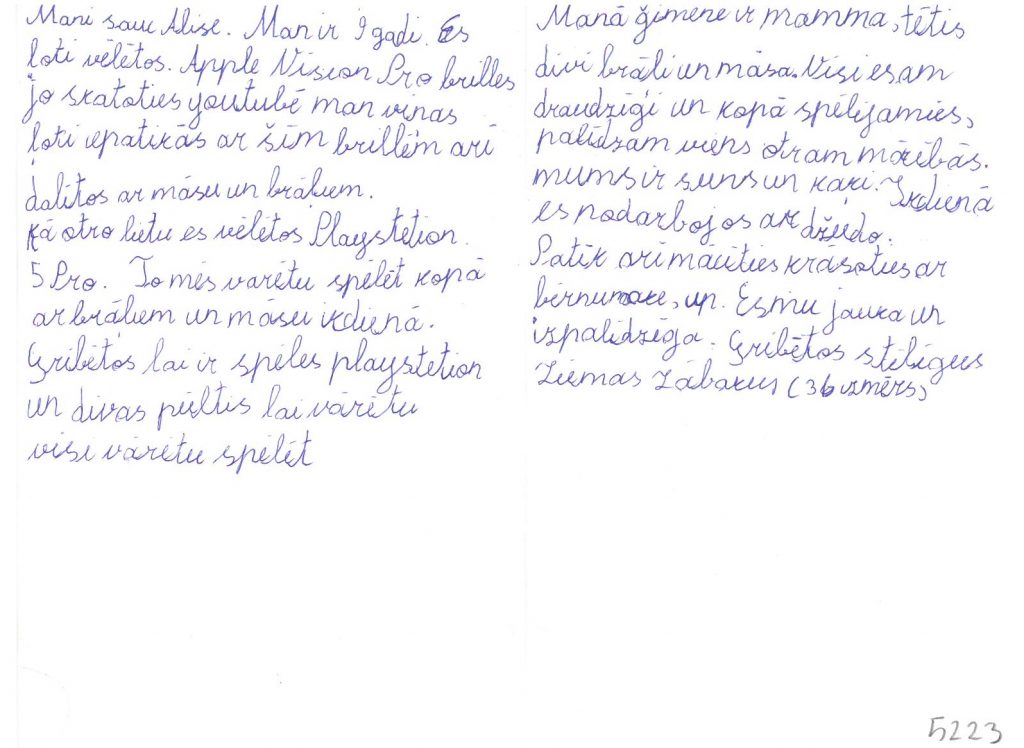 Mani sauc Alise. Man ir 9 gadi. Es
ļoti vēlētos. Apple Vision Pro brilles
jo skatoties youtubē man viņas
ļoti iepatikās ar šīm brillēm arī
dalītos ar māsu un brāļiem.
Kā otro lietu es vēlētos Playstetion
5 Pro. To mēs varētu spēlēt kopā
ar brāļiem un māsu ikdienā.
Gribētos lai ir spēles playstetion
un divas pultis lai varētu
visi varētu spēlēt
Manā ģimene ir mamma, tētis
divi brāļi un māsa. Visi esam
draudzīgi un kopā spēlējamies,
palīdzam viens otram mācībās.
mums ir suns un kaķi. Ikdienā
es nodarbojos ar džudo.
Patīk arī mācīties krāsoties ar
bērnu make, up. Esmu jauka un
izpalīdzīga. Gribētos stilīgus
Ziemas Zābakus (36 izmērs)
5223